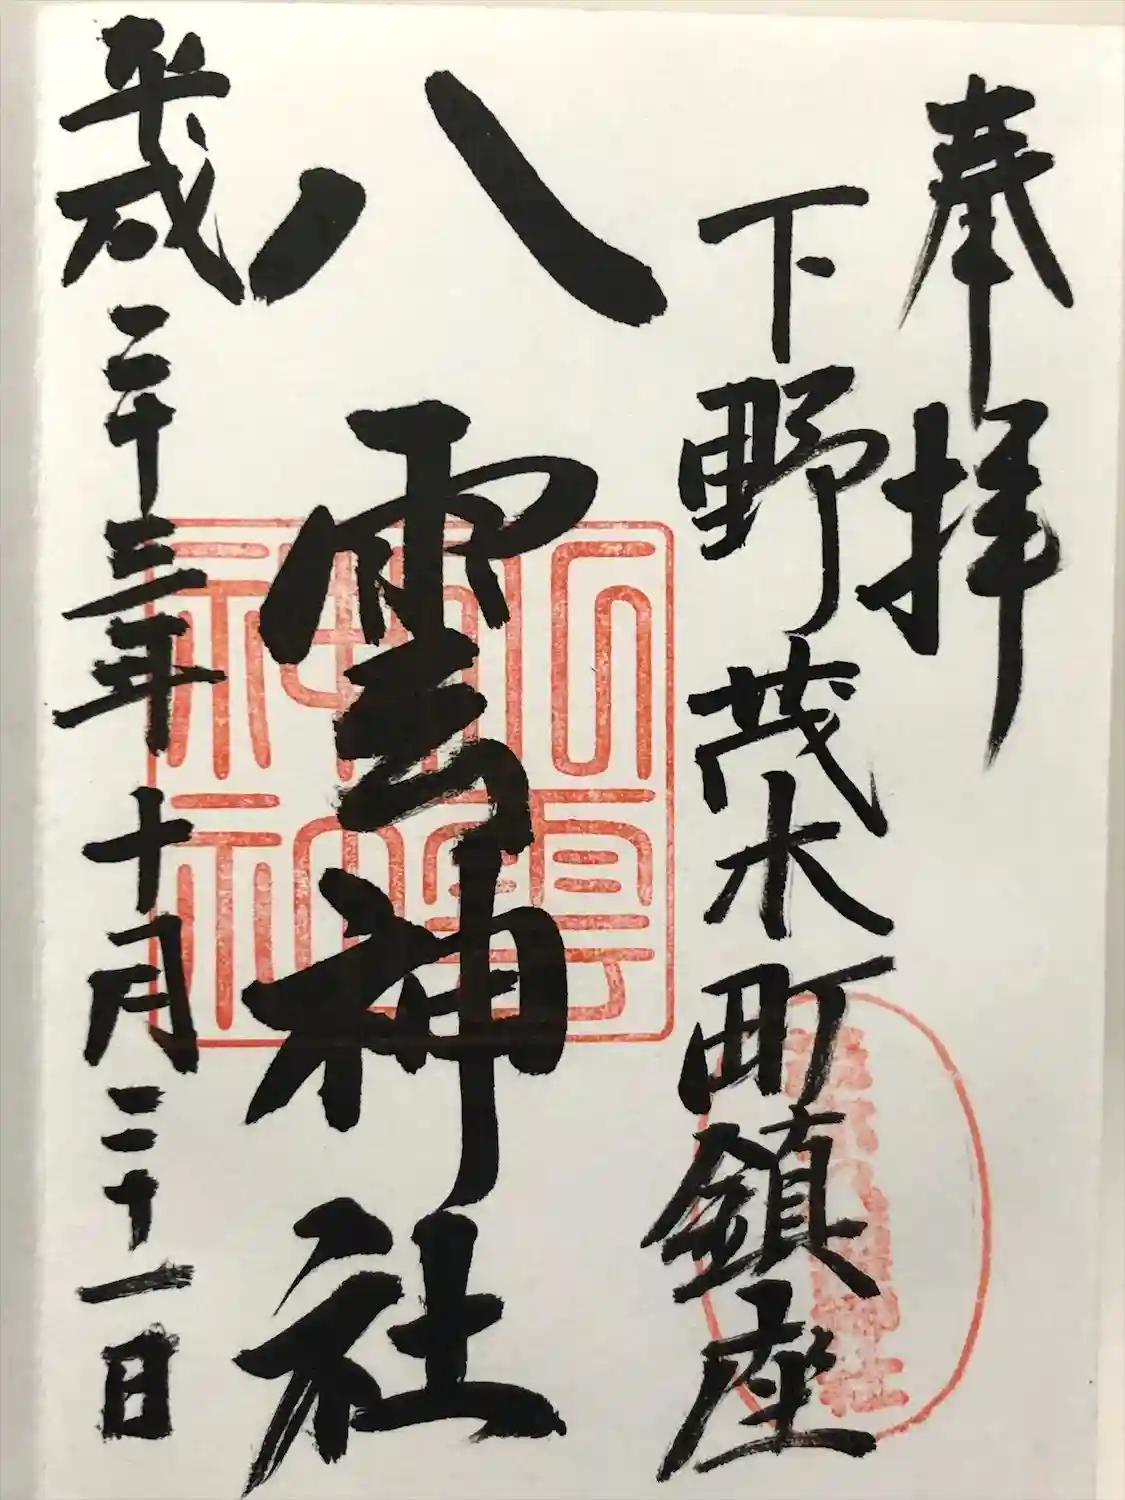 奉拝
下野茂木町鎮座
八雲神社
平成二十三年十月二十一日
八雲神社